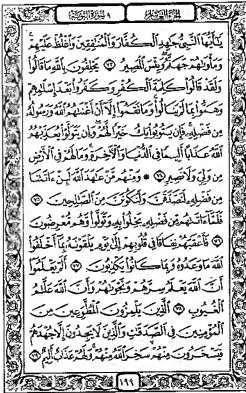 سورة التوبة ٩ الجزء العاشر
يَٰٓأَيُّهَا ٱلنَّبِيُّ جَٰهِدِ ٱلْكُفَّارَ وَٱلْمُنَٰفِقِينَ وَٱغْلُظْ عَلَيْهِمْ
وَمَأْوَىٰهُمْ جَهَنَّمُ وَبِئْسَ ٱلْمَصِيرُ ٧٣ يَحْلِفُونَ بِٱللَّهِ مَا قَالُوا۟
وَلَقَدْ قَالُوا۟ كَلِمَةَ ٱلْكُفْرِ وَكَفَرُوا۟ بَعْدَ إِسْلَٰمِهِمْ
وَهَمُّوا۟ بِمَا لَمْ يَنَالُوا۟ وَمَا نَقَمُوٓا۟ إِلَّآ أَنْ أَغْنَىٰهُمُ ٱللَّهُ وَرَسُولُهُۥ
مِن فَضْلِهِۦ فَإِن يَتُوبُوا۟ يَكُ خَيْرًا لَّهُمْ وَإِن يَتَوَلَّوْا۟ يُعَذِّبْهُمُ
ٱللَّهُ عَذَابًا أَلِيمًا فِى ٱلدُّنْيَا وَٱلْءَاخِرَةِ وَمَا لَهُمْ فِى ٱلْأَرْضِ
مِن وَلِىٍّ وَلَا نَصِيرٍ ٧٤ ۞ وَمِنْهُم مَّنْ عَٰهَدَ ٱللَّهَ لَئِنْ ءَاتَىٰنَا
مِن فَضْلِهِۦ لَنَصَّدَّقَنَّ وَلَنَكُونَنَّ مِنَ ٱلصَّٰلِحِينَ ٧٥
فَلَمَّآ ءَاتَىٰهُم مِّن فَضْلِهِۦ بَخِلُوا۟ بِهِۦ وَتَوَلَّوا۟ وَّهُم مُّعْرِضُونَ
٧٦ فَأَعْقَبَهُمْ نِفَاقًا فِى قُلُوبِهِمْ إِلَىٰ يَوْمِ يَلْقَوْنَهُۥ بِمَآ أَخْلَفُوا۟
ٱللَّهَ مَا وَعَدُوهُ وَبِمَا كَانُوا۟ يَكْذِبُونَ ٧٧ أَلَمْ يَعْلَمُوٓا۟
أَنَّ ٱللَّهَ يَعْلَمُ سِرَّهُمْ وَنَجْوَىٰهُمْ وَأَنَّ ٱللَّهَ عَلَّٰمُ
ٱلْغُيُوبِ ٧٨ ٱلَّذِينَ يَلْمِزُونَ ٱلْمُطَّوِّعِينَ مِنَ
ٱلْمُؤْمِنِينَ فِى ٱلصَّدَقَٰتِ وَٱلَّذِينَ لَا يَجِدُونَ إِلَّا جُهْدَهُمْ
فَيَسْخَرُونَ مِنْهُمْ سَخِرَ ٱللَّهُ مِنْهُمْ وَلَهُمْ عَذَابٌ أَلِيمٌ ٧٩
١٩٩